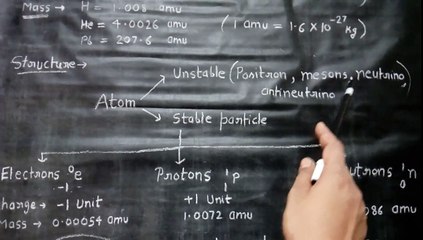 Mass → H = 1.008 amu
He = 4.0026 amu
Pb = 207.6 amu
( 1 amu = 1.6 × 10⁻²⁷ kg )
Structure →
Unstable (Positron, mesons, neutrino,
antineutrino)
Atom
Stable particle
Electrons ⁰e
-1
Protons ¹p
1
utrons ¹n
harge → -1 Unit
+1 Unit
Mass → 0.00054 amu
1.0072 amu
086 amu